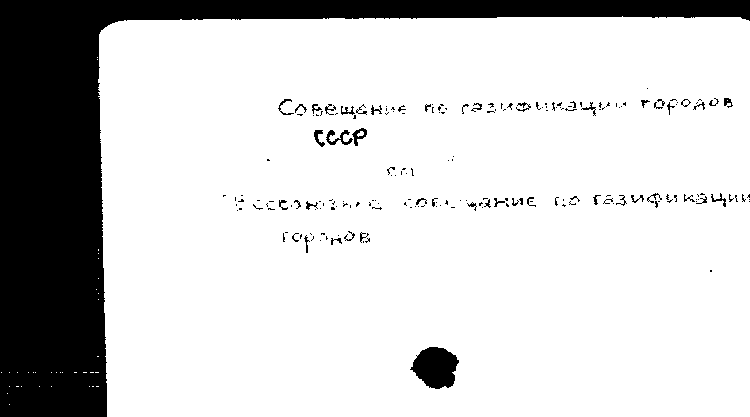 Совещание по газификации городов
СССР
см
Всесоюзное совещание по газификации
городов